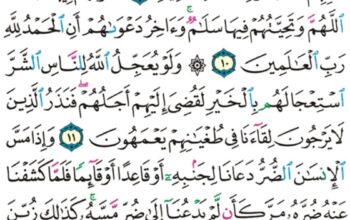 اللَّهُمَّ وَتَحِيَّتُهُمْ فِيهَا سَلَٰمٌ ۚ وَءَاخِرُ دَعْوَىٰهُمْ أَنِ الْحَمْدُ لِلَّهِ
رَبِّ الْعَٰلَمِينَ ١٠ ۞ وَلَوْ يُعَجِّلُ اللَّهُ لِلنَّاسِ الشَّرَّ
اسْتِعْجَالَهُم بِالْخَيْرِ لَقُضِىَ إِلَيْهِمْ أَجَلُهُمْ ۖ فَنَذَرُ الَّذِينَ
لَا يَرْجُونَ لِقَآءَنَا فِى طُغْيَٰنِهِمْ يَعْمَهُونَ ١١ وَإِذَا مَسَّ
الْإِنسَٰنَ الضُّرُّ دَعَانَا لِجَنۢبِهِۦٓ أَوْ قَاعِدًا أَوْ قَآئِمًا فَلَمَّا كَشَفْنَا
عَنْهُ ضُرَّهُۥ مَرَّ كَأَن لَّمْ يَدْعُنَآ إِلَىٰ ضُرٍّ مَّسَّهُۥ ۚ كَذَٰلِكَ زُيِّنَ